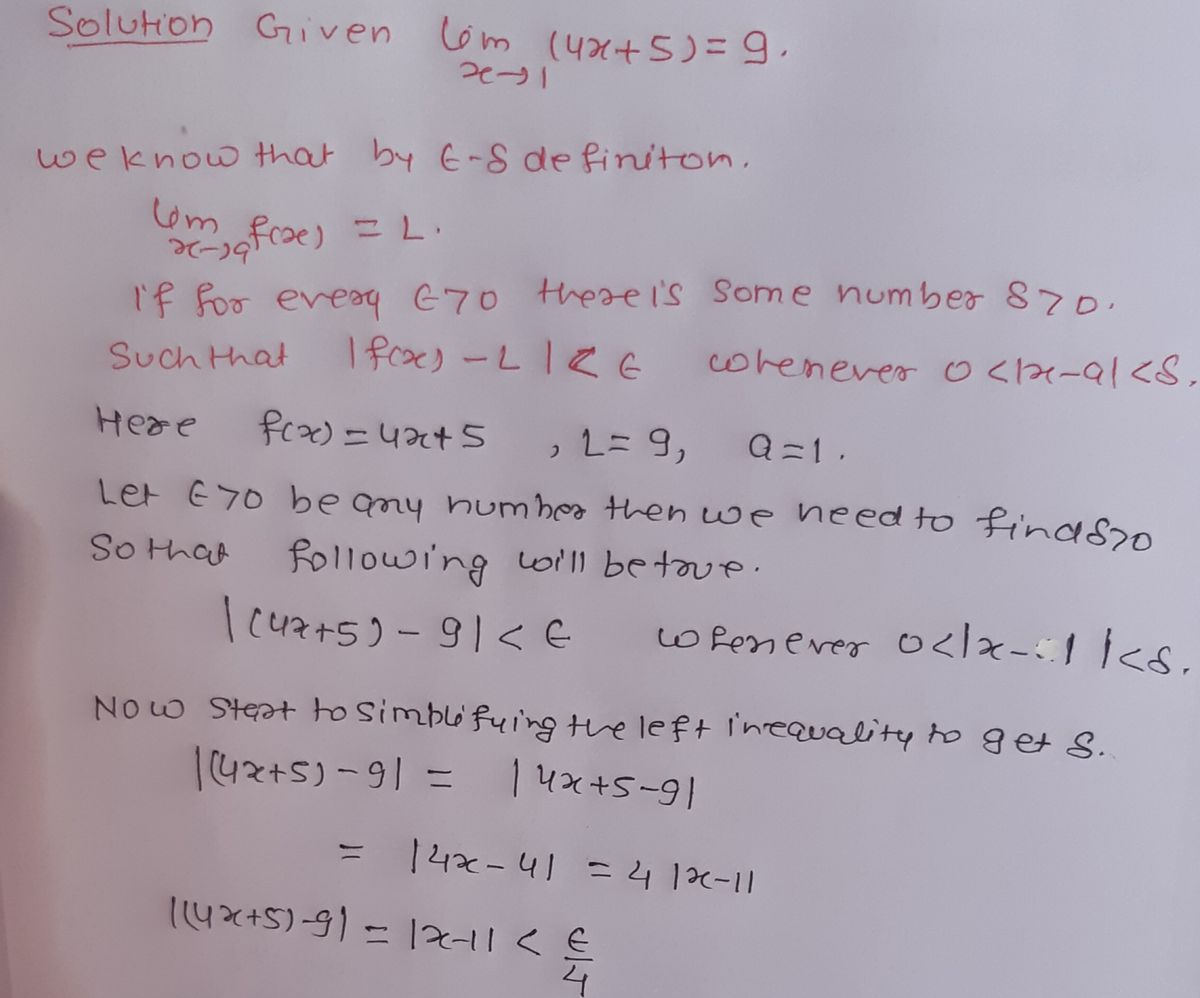 Solution Given lim (4x+5)=9.
x→1
we know that by ϵ-δ definiton.
lim f(x) = L.
x→a
if for every ϵ>0 there is some number δ>0.
Such that |f(x)-L|<ϵ whenever 0<|x-a|<δ.
Here f(x)=4x+5, L=9, a=1.
Let ϵ>0 be any number then we need to find δ>0
So that following will be true.
|(4x+5)-9|<ϵ whenever 0<|x-1|<δ.
Now Start to simplifying the left inequality to get δ.
|(4x+5)-9| = |4x+5-9|
= |4x-4| = 4|x-1|
|(4x+5)-9| = |x-1| < ϵ/4